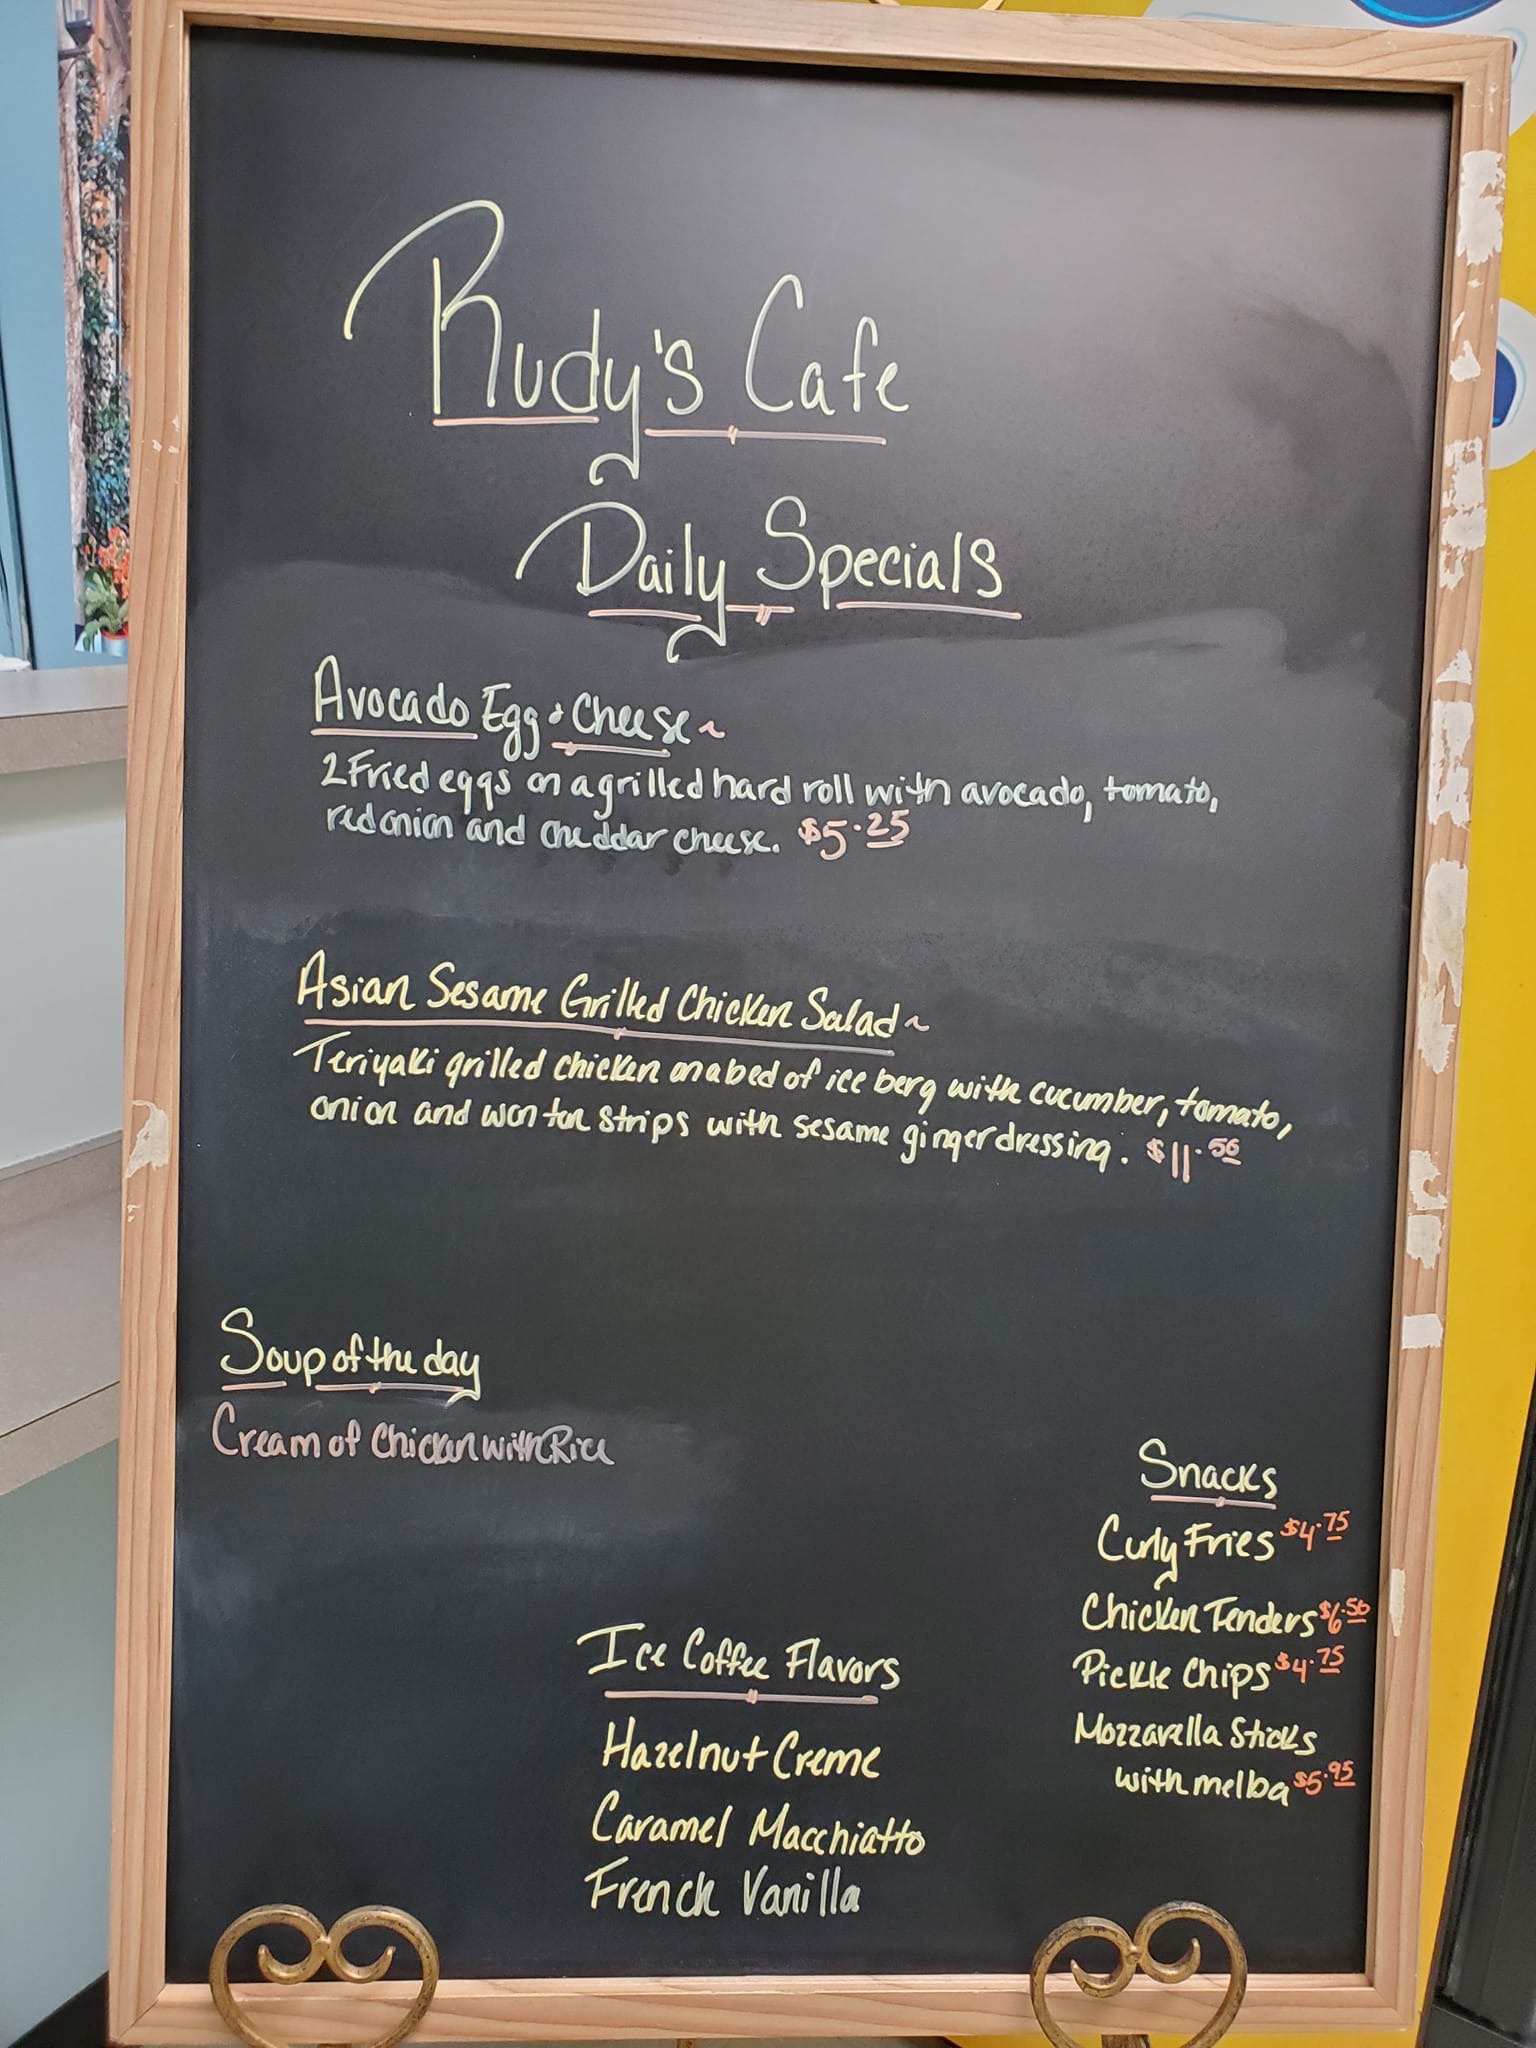 Rudy's Cafe
Daily Specials
Avocado Egg & Cheese ~
2 Fried eggs on a grilled hard roll with avocado, tomato,
red onion and cheddar cheese. $5.25
Asian Sesame Grilled Chicken Salad ~
Teriyaki grilled chicken on a bed of ice berg with cucumber, tomato,
onion and wonton strips with sesame ginger dressing. $11.50
Soup of the day
Cream of Chicken with Rice
Snacks
Curly Fries $4.75
Chicken Tenders $6.50
Pickle Chips $4.75
Mozzarella Sticks
with melba $5.95
Ice Coffee Flavors
Hazelnut Creme
Caramel Macchiatto
French Vanilla